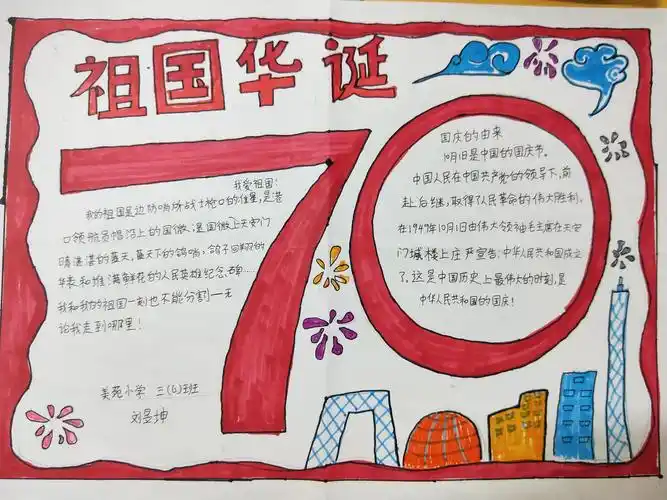 祖国华诞
70
我爱祖国:
我的祖国是边防哨所战士枪口的准星,是港
口领航员帽沿上的国徽,是国徽上天安门
晴湛湛的蓝天,蓝天下的鸽哨,鸽子回翔的
和堆满鲜花的人民英雄纪念碑……
我和我的祖国一刻也不能分割一无
论我走到哪里!
美苑小学 三(6)班
刘昱坤
国庆的由来
10月1日是中国的国庆节。
中国人民在中国共产党的领导下,前
赴后继,取得了人民革命的伟大胜利,
在1949年10月1日由伟大领袖毛主席在天安
门城楼上庄严宣告:中华人民共和国成立
了,这是中国历史上最伟大的时刻,是
中华人民共和国的国庆!